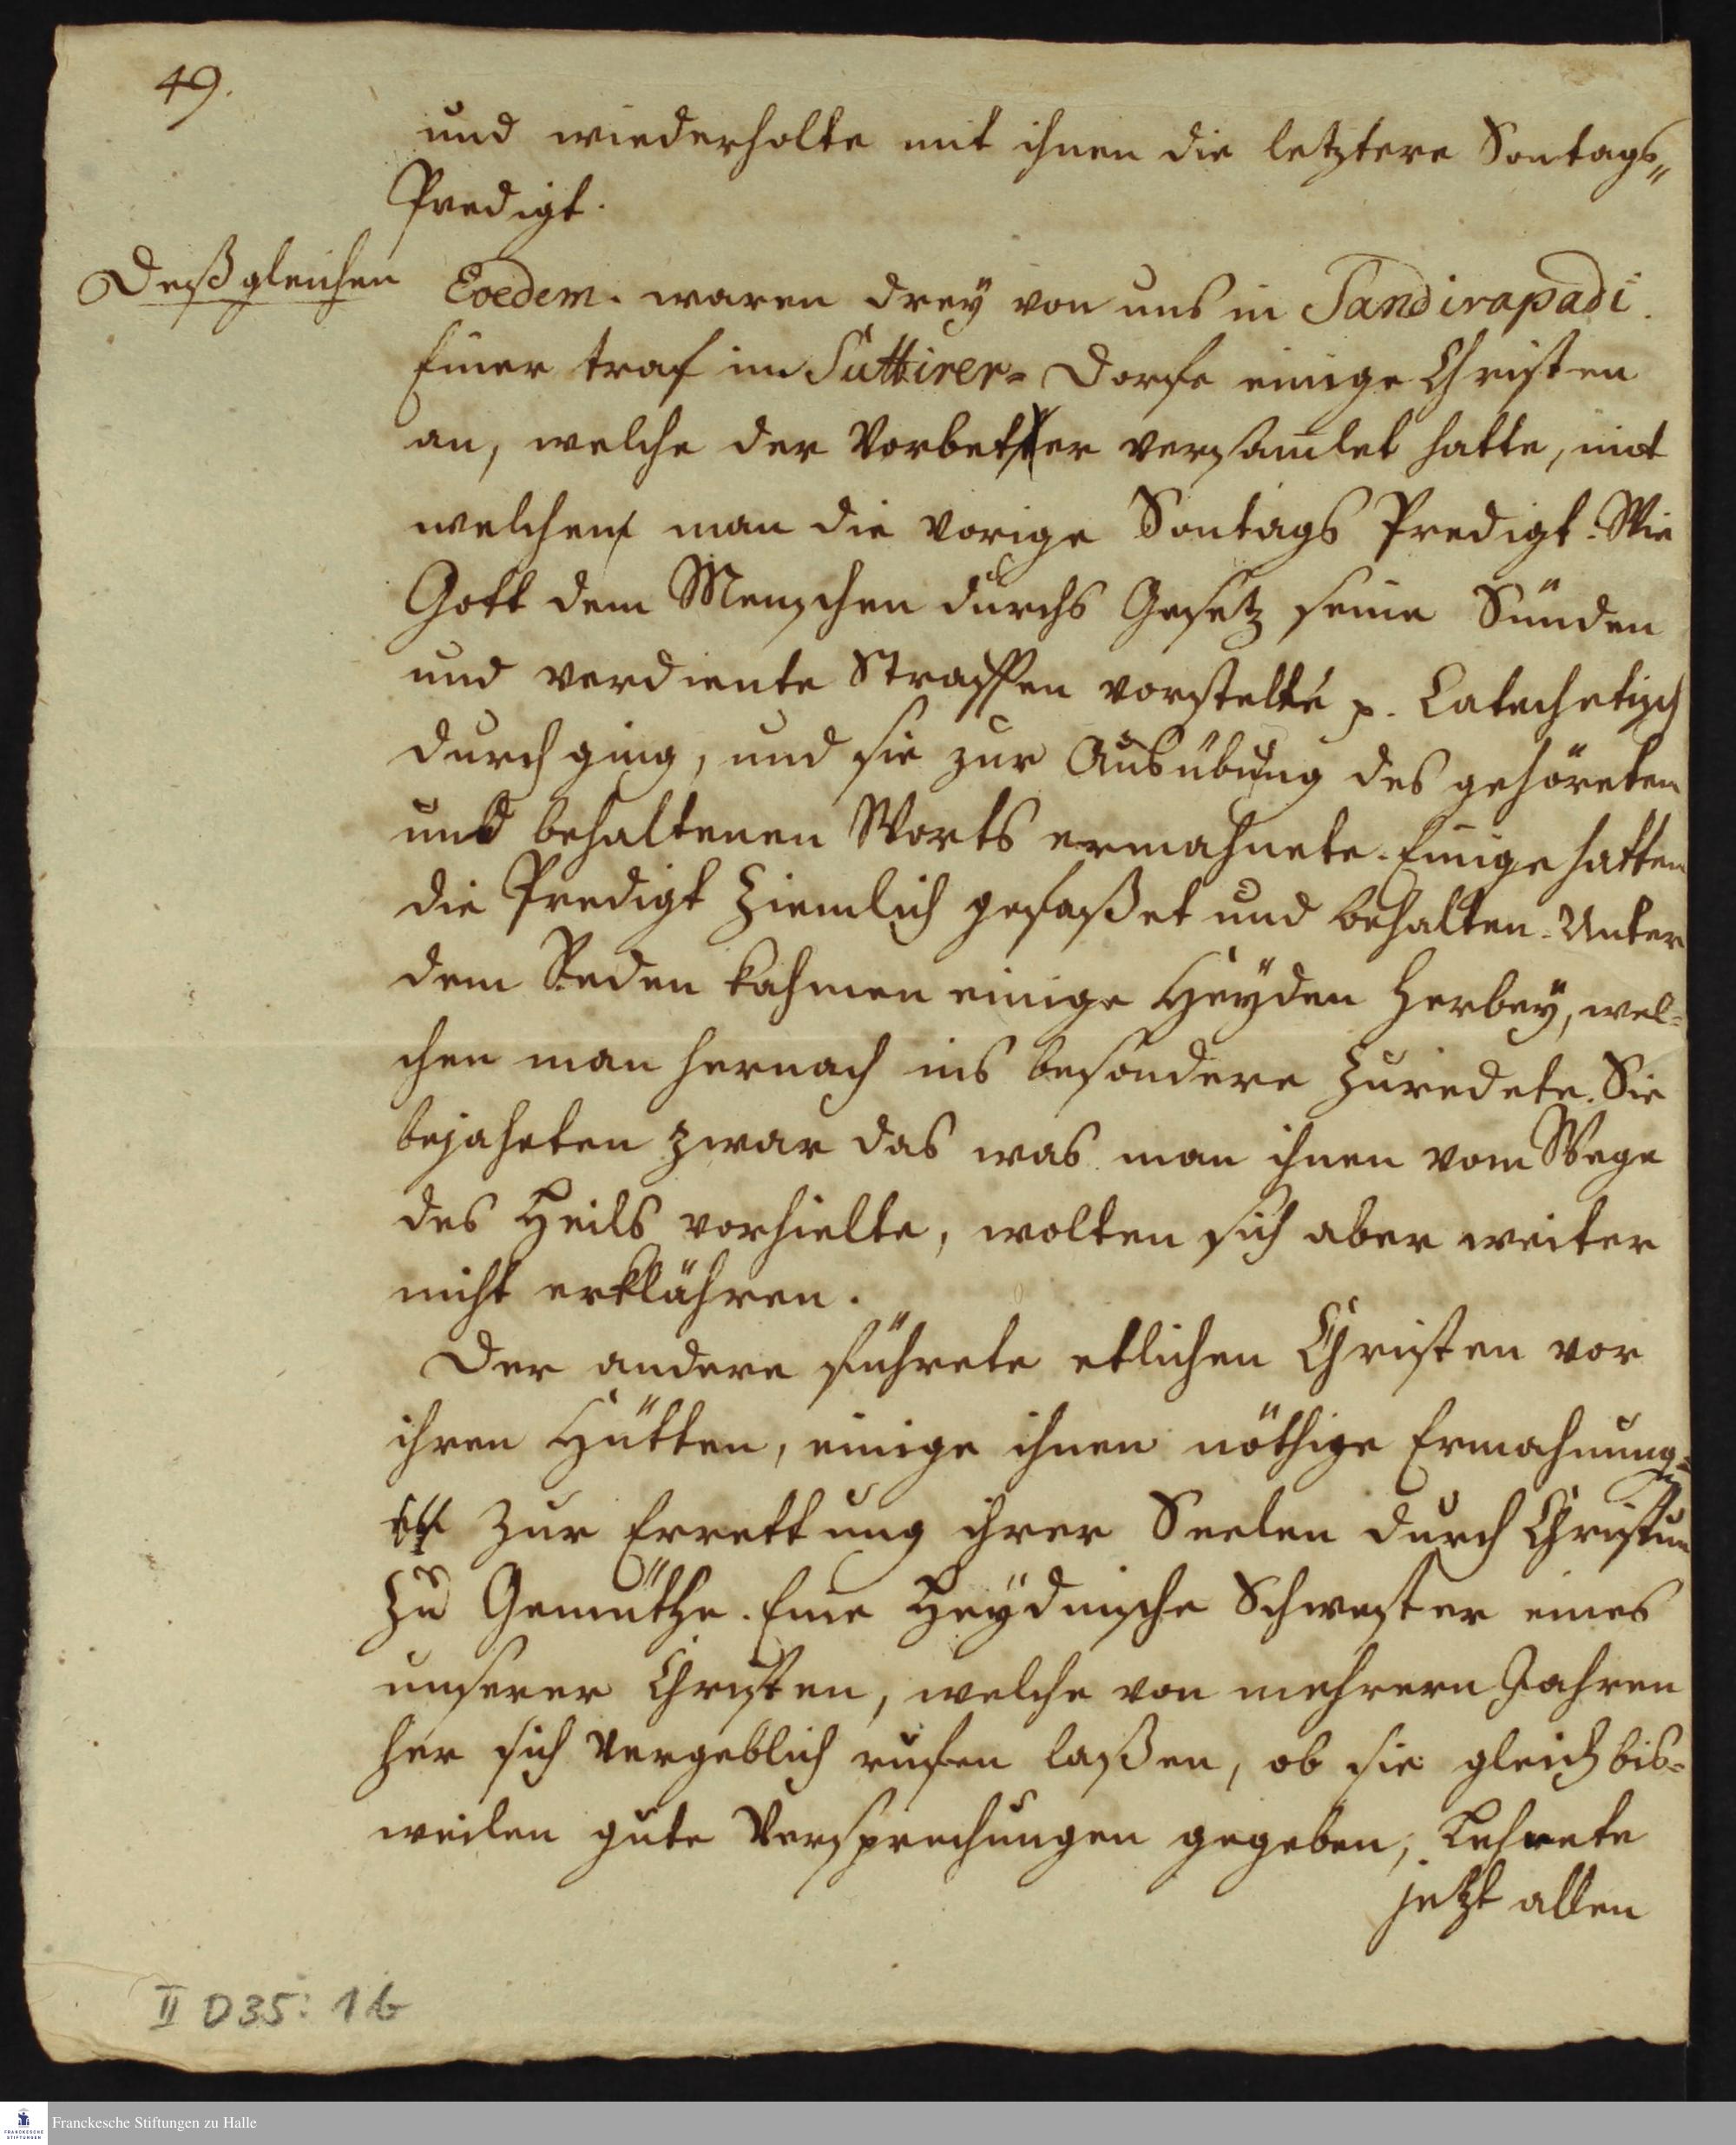 49.
und wiederholte mit ihnen die letztere Sontags„
Predigt.
Deßgleichen
Eoedem. waren drey von uns in Sandirapadi.
Einer traf im Suttirer- Dorfe einige Christen
an, welche der Vorbetter versamlet hatte, mit
welchen man die vorige Sontags Predigt. Wie
Gott dem Menschen durchs Gesetz seine Sünden
und verdiente Straffen vorstelte p. Catechetisch
durch ging, und sie zur Ausübung des gehöreten
und behaltenen Worts ermahnete. Einige hatten
die Predigt ziemlich gefaßet und behalten. Unter
dem Reden kahmen einige Heyden herbey, wel-
chen man hernach ins besondere zuredete. Sie
bejaheten zwar das was man ihnen vom Wege
des Heils vorhielte, wolten sich aber weiter
nicht erklähren.
Der andere führete etlichen Christen vor
ihren Hütten, einige ihnen nöthige Ermahnung-
en zur Errettung ihrer Seelen durch Christum
zu Gemüthe. Eine Heydnische Schwester eines
unserer Christen, welche von mehrern Jahren
her sich vergeblich rufen laßen, ob sie gleich bis-
weilen gute Versprechungen gegeben, kehrete
jetzt allen
II D35: 16
Franckesche Stiftungen zu Halle
FRANCKESCHE
STIFTUNGEN